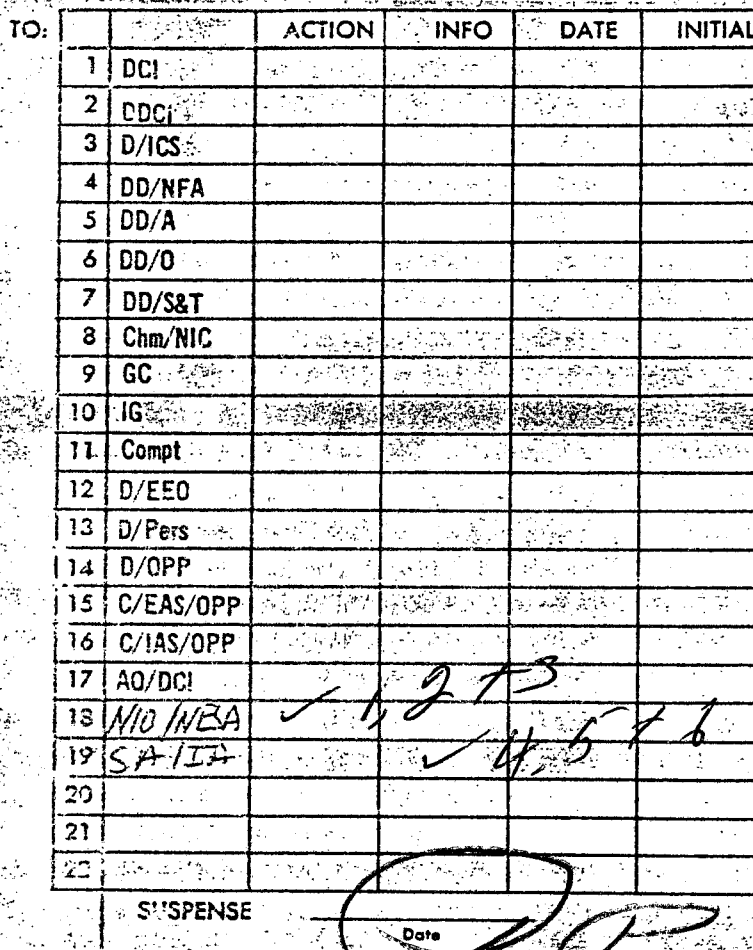 TO: ACTION INFO DATE INITIAL
1 DCI
2 DDCI
3 D/ICS
4 DD/NFA
5 DD/A
6 DD/O
7 DD/S&T
8 Chm/NIC
9 GC
10 IG
11 Compt
12 D/EEO
13 D/Pers
14 D/OPP
15 C/EAS/OPP
16 C/IAS/OPP
17 AO/DCI
18 NIO/NESA ✓ 1, 2 + 3
19 SA/IA ✓ 4, 5 + 6
20
21
22
SUSPENSE
Date